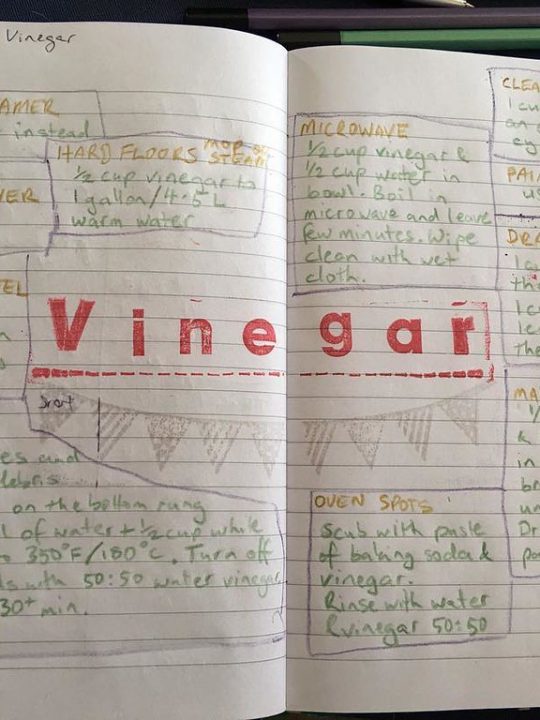 Vinegar
AMER
instead
HARD FLOORS MOP OR
STEAM
½ cup vinegar to
1 gallon/4.5 L
warm water
VER
EL
MICROWAVE
½ cup vinegar &
½ cup water in
bowl. Boil in
microwave and leave
few minutes. Wipe
clean with wet
cloth.
CLEA
1 cu
PAI
us
DRA
Vinegar
es and
debris
on the bottom rung
l of water + ½ cup while
350°F/180°C. Turn off
s with 50:50 water vinegar
30+ min.
OVEN SPOTS
Scub with paste
of baking soda &
vinegar.
Rinse with water
& vinegar 50:50
MA
&
in
br
un
Dr
po